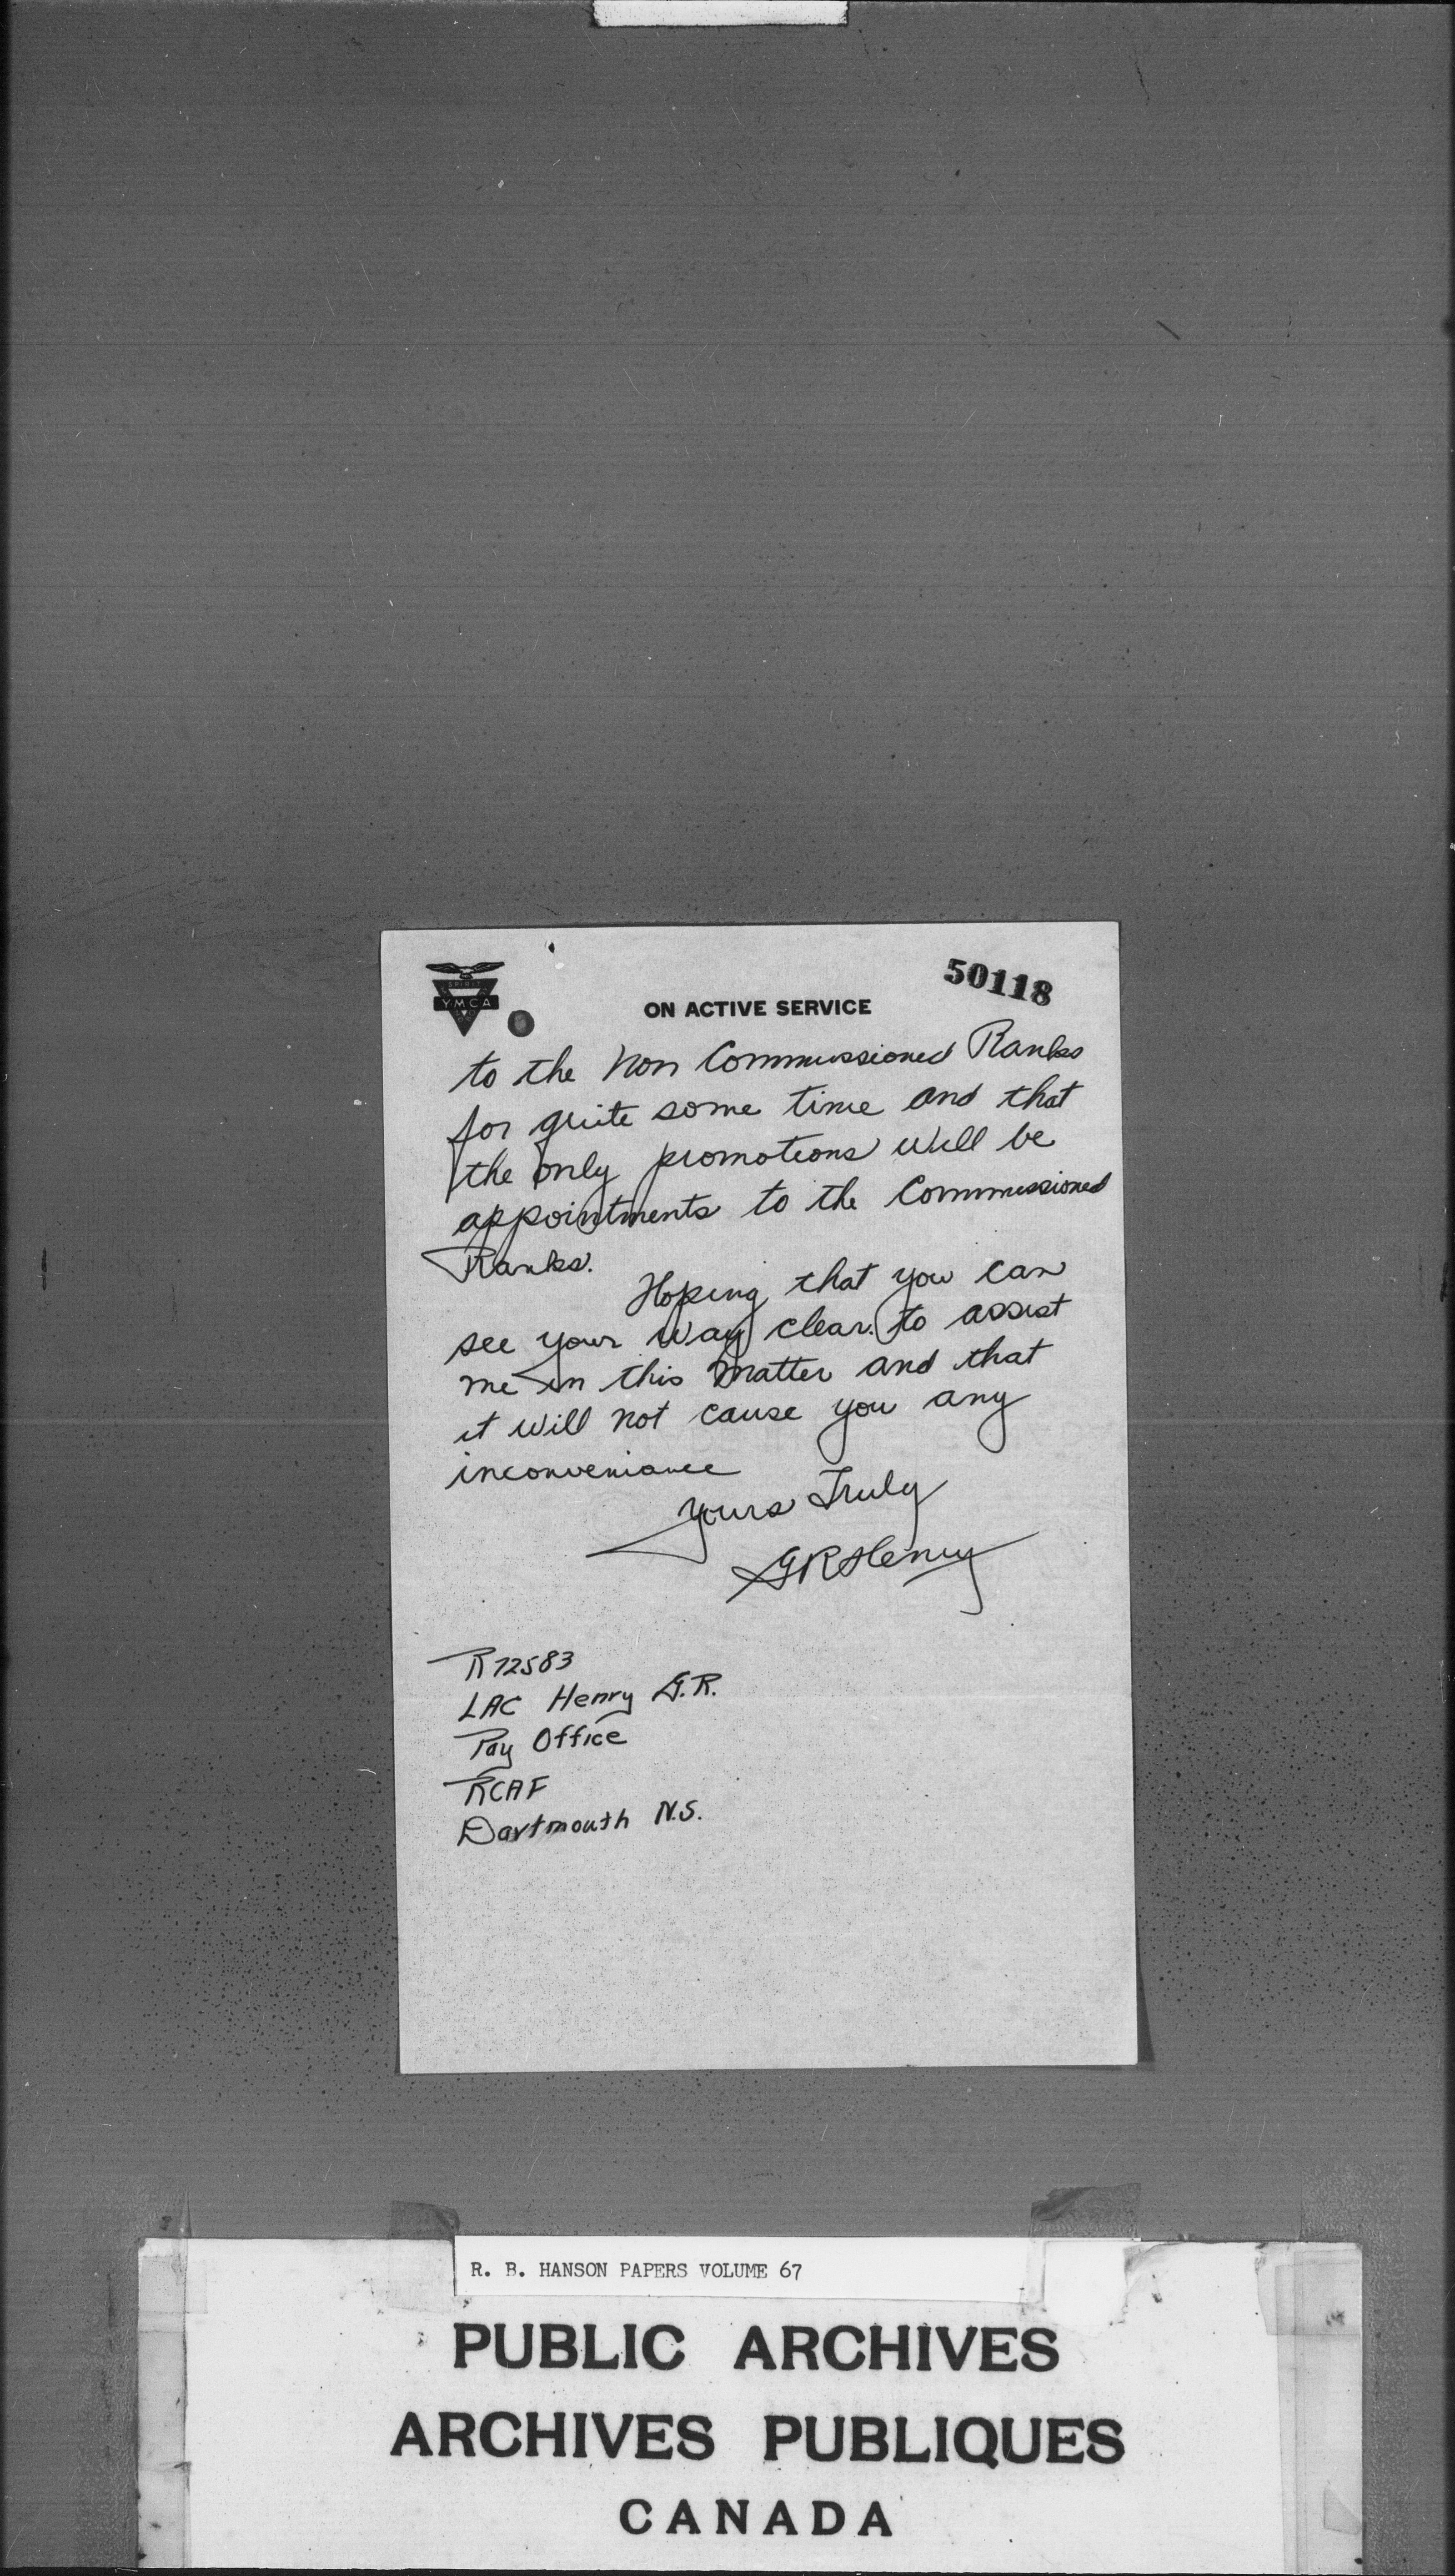 50118
SPIRIT
YMCA
ON ACTIVE SERVICE
to the Non Commissioned Ranks
for quite some time and that
the only promotions will be
appointments to the Commissioned
Ranks.
Hoping that you can
see your way clear to assist
me in this matter and that
it will not cause you any
inconveniance
Yours Truly
GRHenry
R72583
LAC Henry G.R.
Pay Office
RCAF
Dartmouth N.S.
R. B. HANSON PAPERS VOLUME 67
PUBLIC ARCHIVES
ARCHIVES PUBLIQUES
CANADA